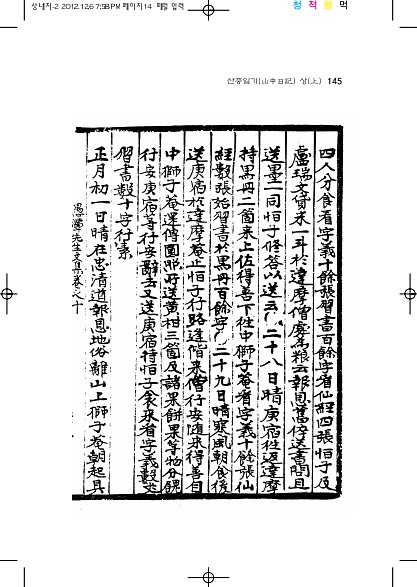 상내지-2 2012.12.6 7:58 PM 페이지14 패럴 입력
청 적 황 먹
산중일기(山中日記) 상(上) 145
四人分食看字義十餘張習書百餘字看仙經四張恒子及
盧瑞文貸米一斗於達摩僧處爲粮云報恩舊倅送書問且
送墨二同恒子修答以送云 二十八日晴庚宿往返達摩
持黑丹二箇來上佐得善下往中獅子菴看字義十餘張仙
經數張始習書於黑丹百餘字 二十九日晴寒風朝食後
送庚宿於達摩菴止恒子行路進階來僧行安隨來得善自
中獅子菴還傳圓熙所送黃柑三箇及諸果餠果等物分餽
行安庚宿等行安辭去又送庚宿持恒子衾來看字義數丈
習書數十字行素
正月初一日晴在忠清道報恩地俗離山上獅子菴朝起具
愚潭先生文集卷之十